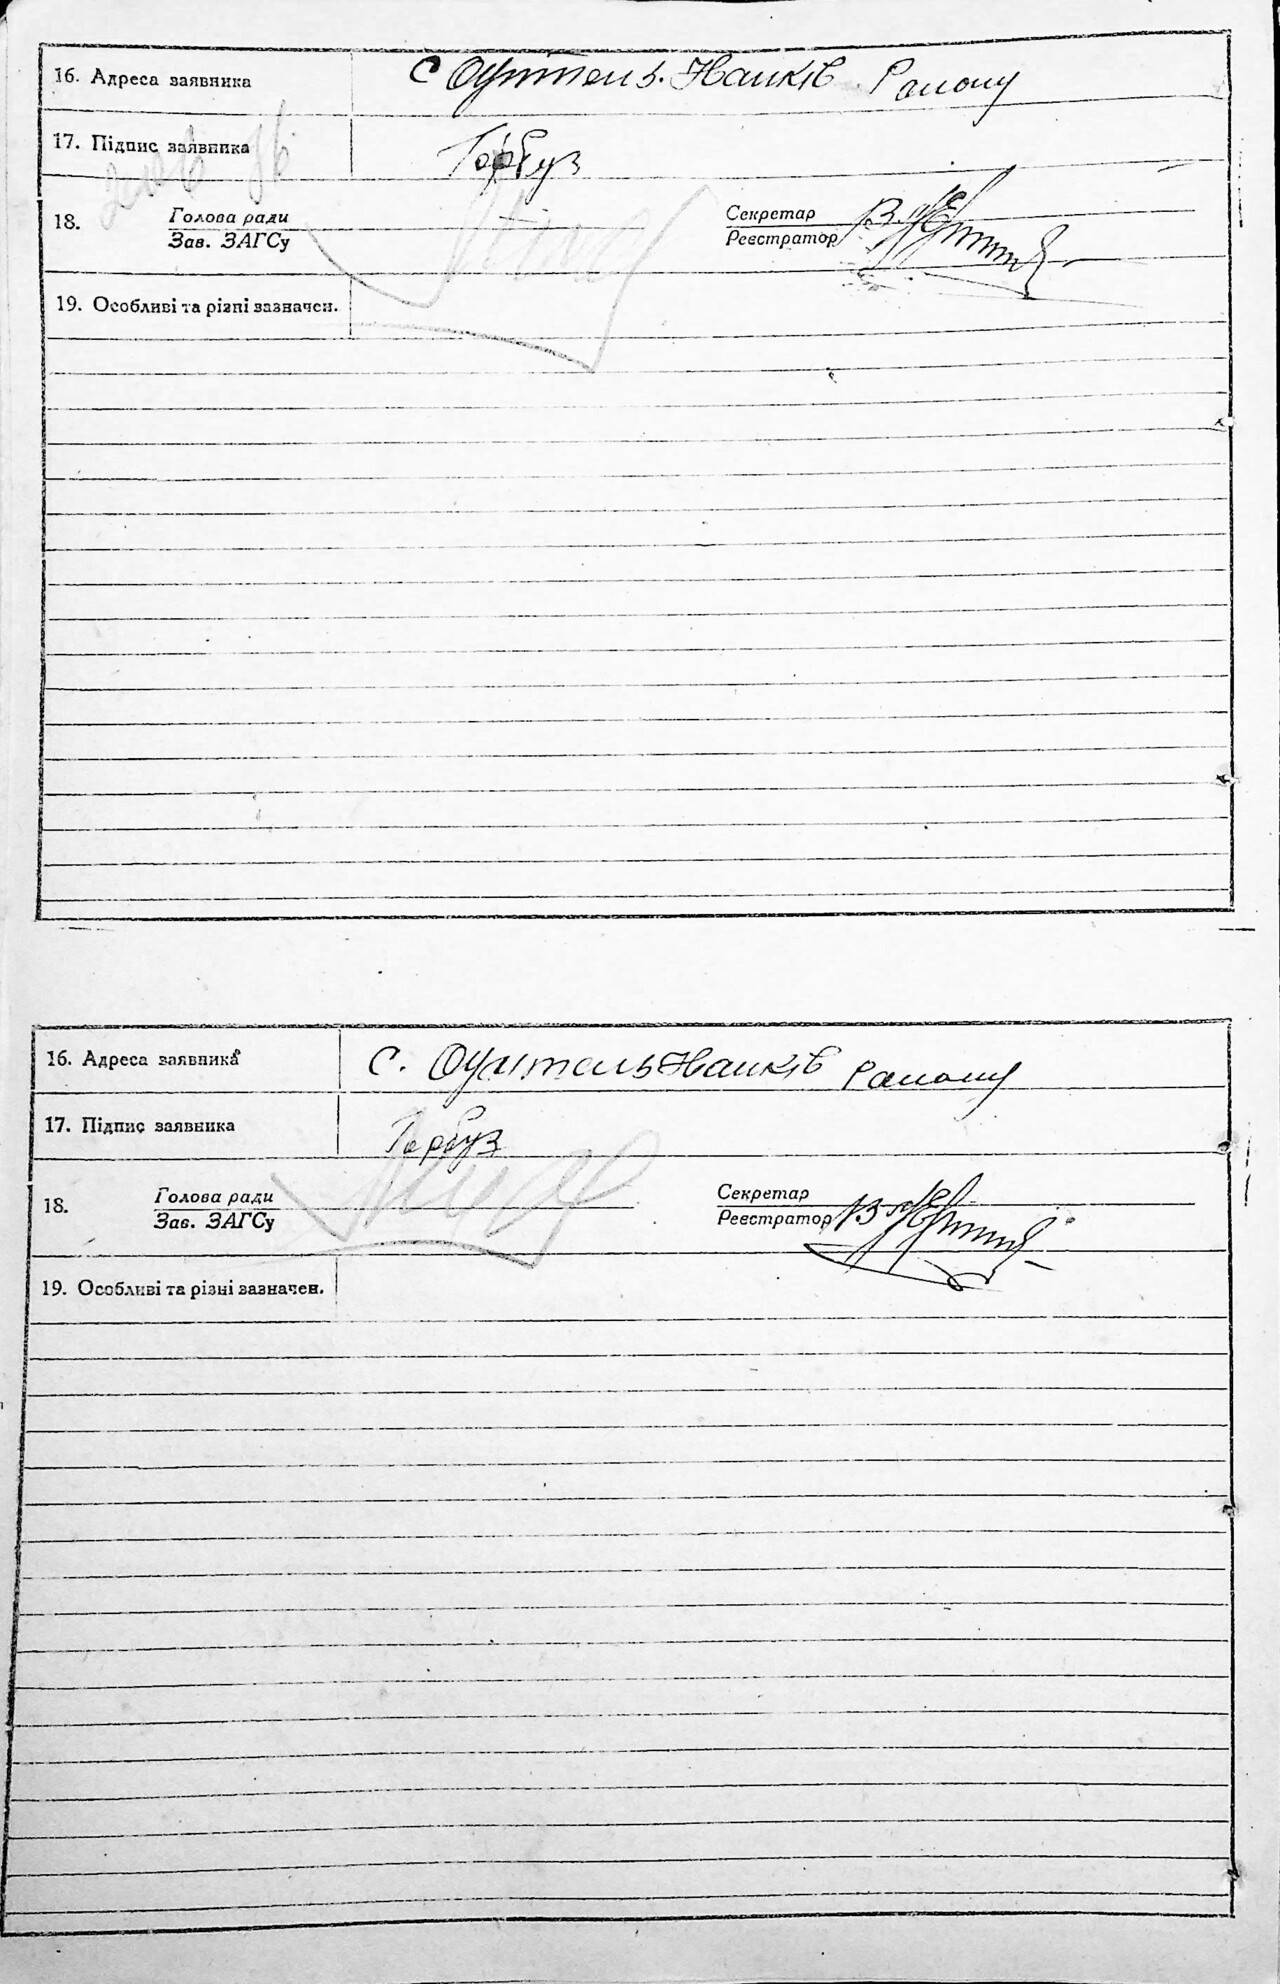 16. Адреса заявника с Нанків Району
17. Підпис заявника Гарбуз
18. Голова ради Секретар
Зав. ЗАГСу Реєстратор
19. Особливі та різні зазначен.
16. Адреса заявника с. Нанків Району
17. Підпис заявника Гарбуз
18. Голова ради Секретар
Зав. ЗАГСу Реєстратор
19. Особливі та різні зазначен.